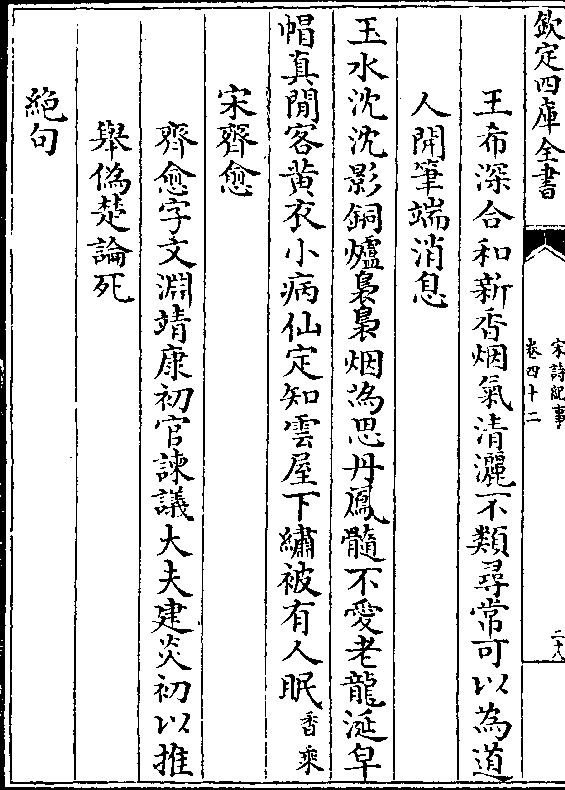 欽定四庫全書
宋詩紀事
卷四十二
二十八
王希深合和新香烟氣清灑不類尋常可以為道
人開筆端消息
玉水沈沈影銅爐裊裊烟為思丹鳳髓不愛老龍涎皁
帽真閒客黄衣小病仙定知雲屋下繡被有人眠香乘
宋齊愈
齊愈字文淵靖康初官諫議大夫建炎初以推
舉偽楚論死
絶句